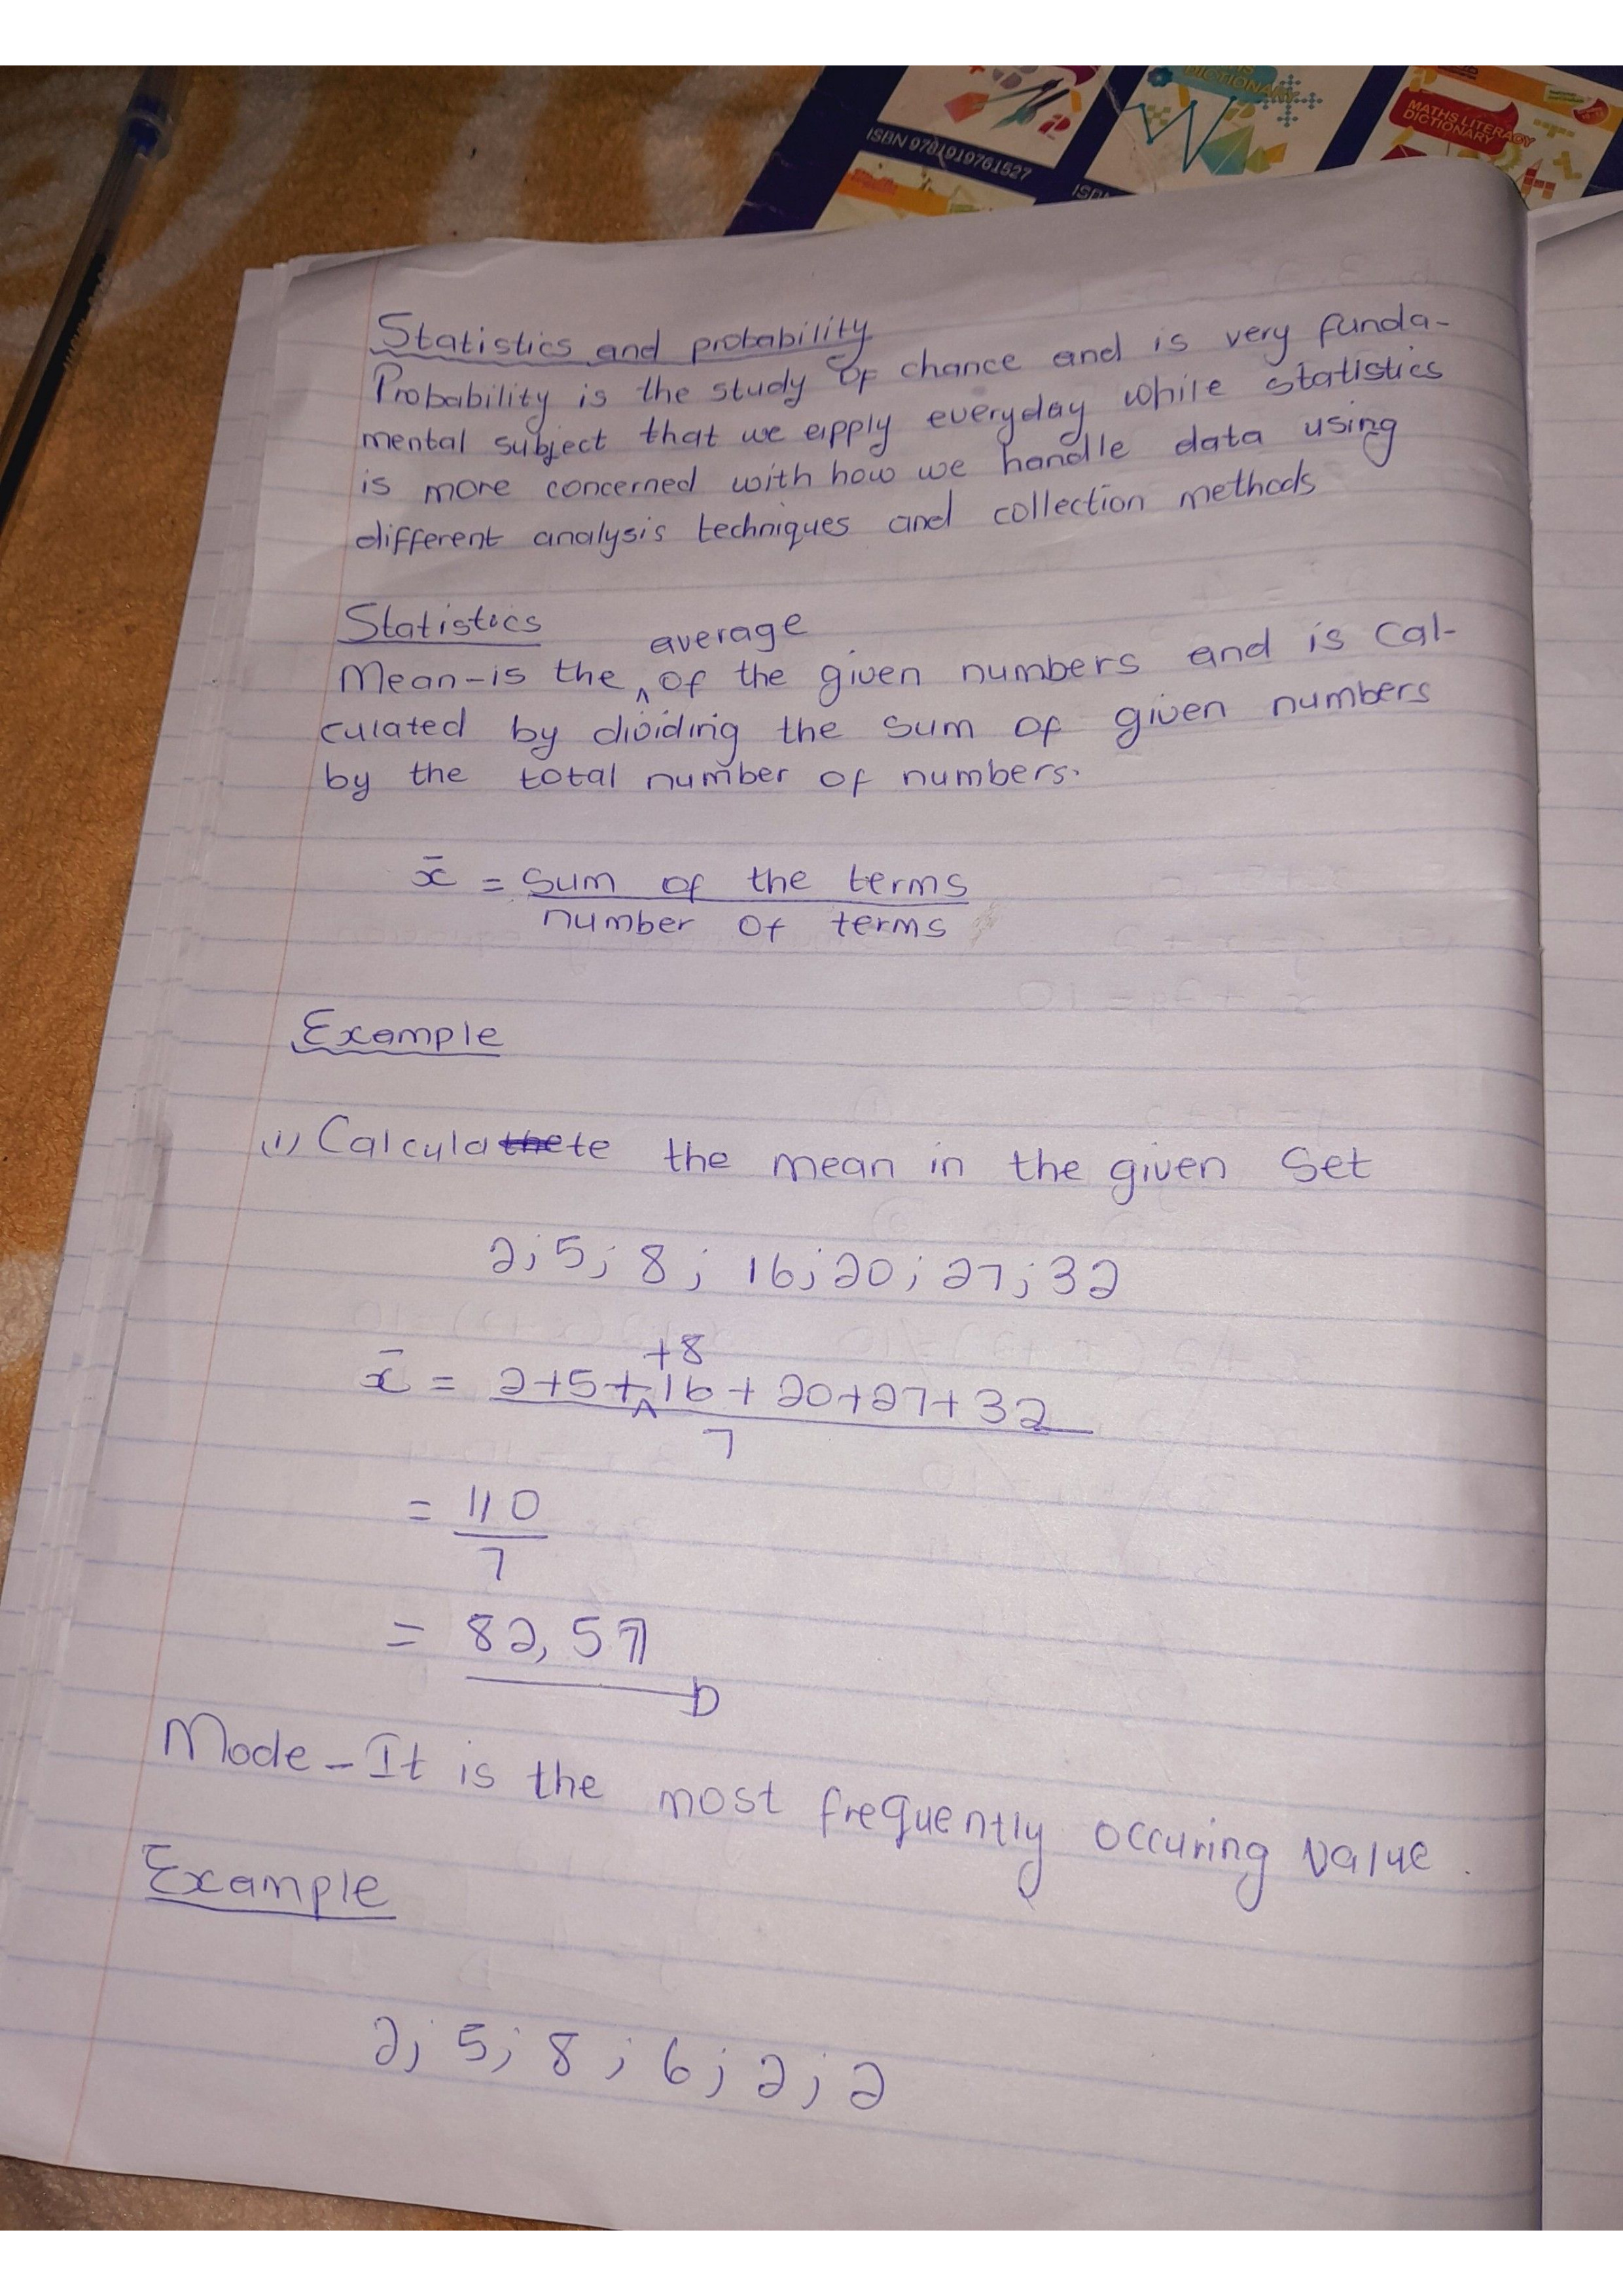 DICTIONARY
MATHS LITERACY
DICTIONARY
ISBN 9781919761527
Statistics and probability
Probability is the study of chance and is very funda-
mental subject that we apply everyday while statistics
is more concerned with how we handle data using
different analysis techniques and collection methods
Statistics
average
Mean-is the ^ of the given numbers and is cal-
culated by dividing the sum of given numbers
by the total number of numbers.
x̄ = sum of the terms
number of terms
Example
(1) Calculate the mean in the given Set
2; 5; 8; 16; 20; 27; 32
+8
x̄ = 2+5+^16+20+27+32
7
= 110
7
= 82,57
Mode - It is the most frequently occuring value.
Example
2; 5; 8; 6; 2; 2